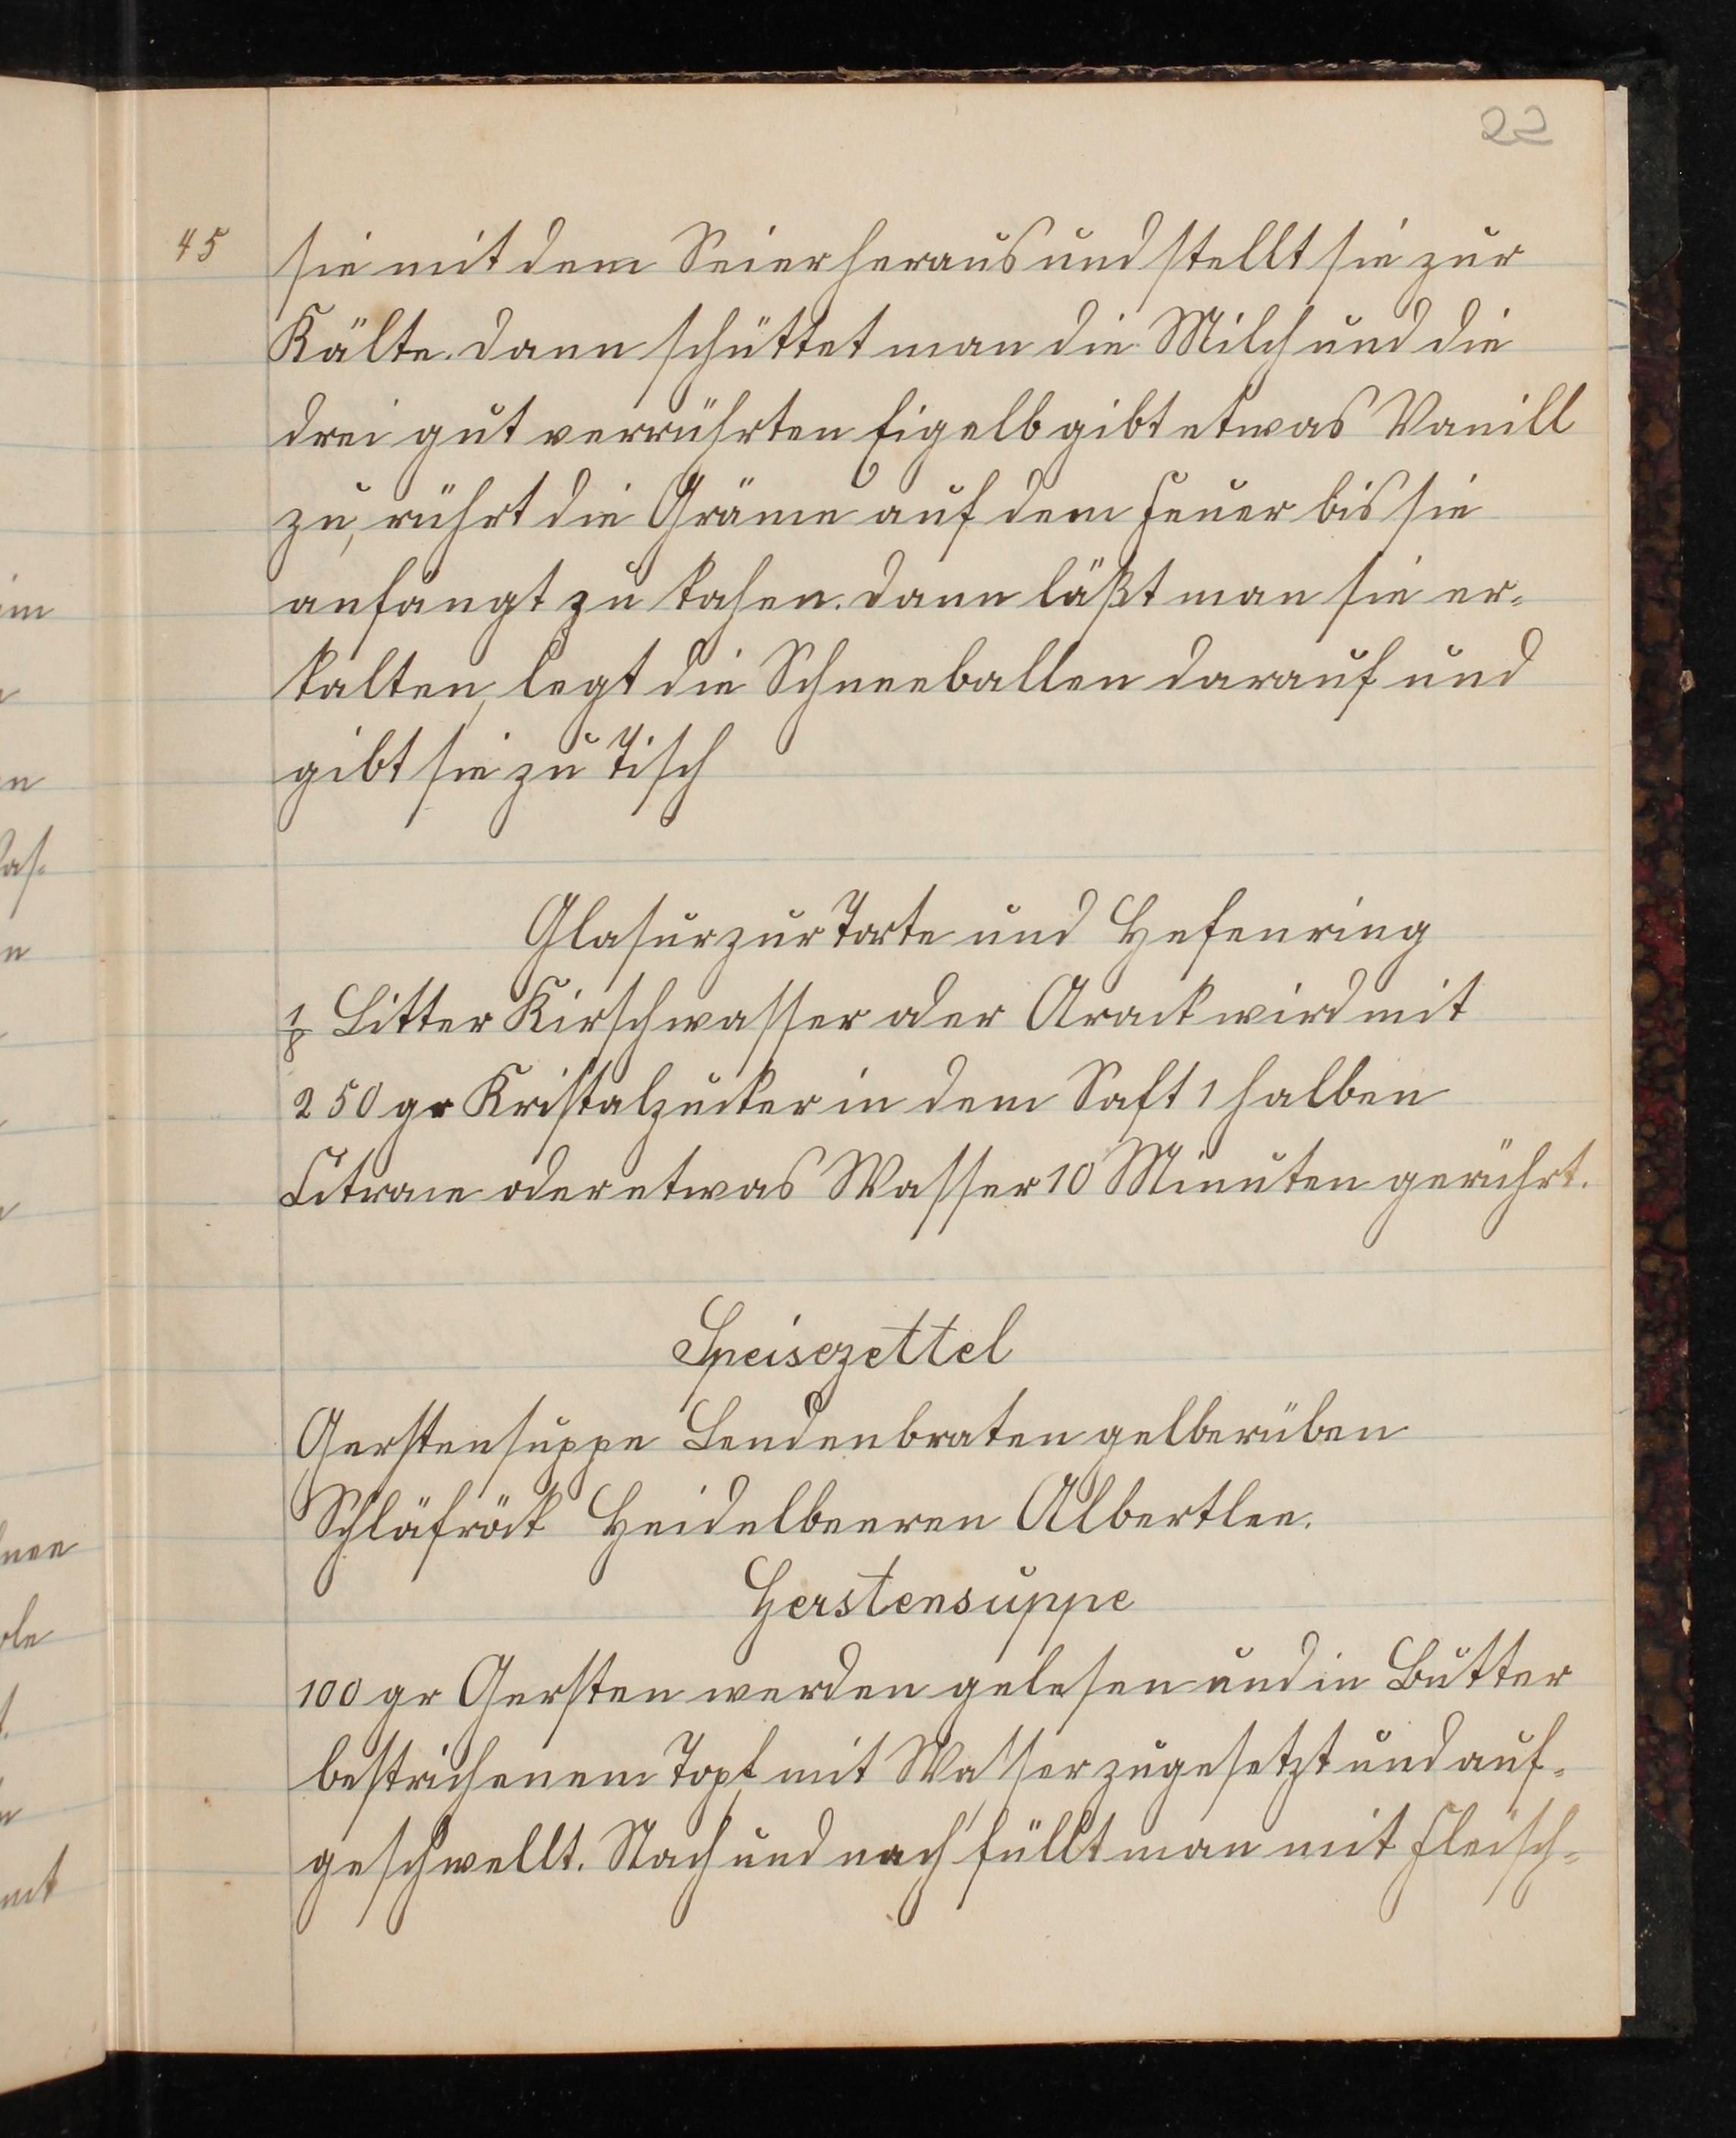 22
45
sie mit dem Seier heraus und stellt sie zur
Kälte. dann schüttet man die Milch und die
drei gut verrührten Eigelb gibt etwas Vanill
zu, rührt die Gräme auf dem Feuer bis sie
anfangt zu kochen. dann läßt man sie er-
kalten, legt die Schneeballen darauf und
gibt sie zu Tisch
Glasur zur Torte und Hefenring
1/8 Litter Kirschwasser oder Arack wird mit
250 gr Kristalzucker in dem Saft 1 halben
Citrone oder etwas Wasser 10 Minuten gerührt.
Speisezettel
Gerstensuppe Lendenbraten gelberüben
Schläfröck Heidelbeeren Albertlen.
Gerstensuppe
100 gr Gersten werden gelesen und in Butter
bestrichenem Topf mit Wasser zugesetzt und auf-
geschwellt. Nach und nach füllt man mit Fleisch-